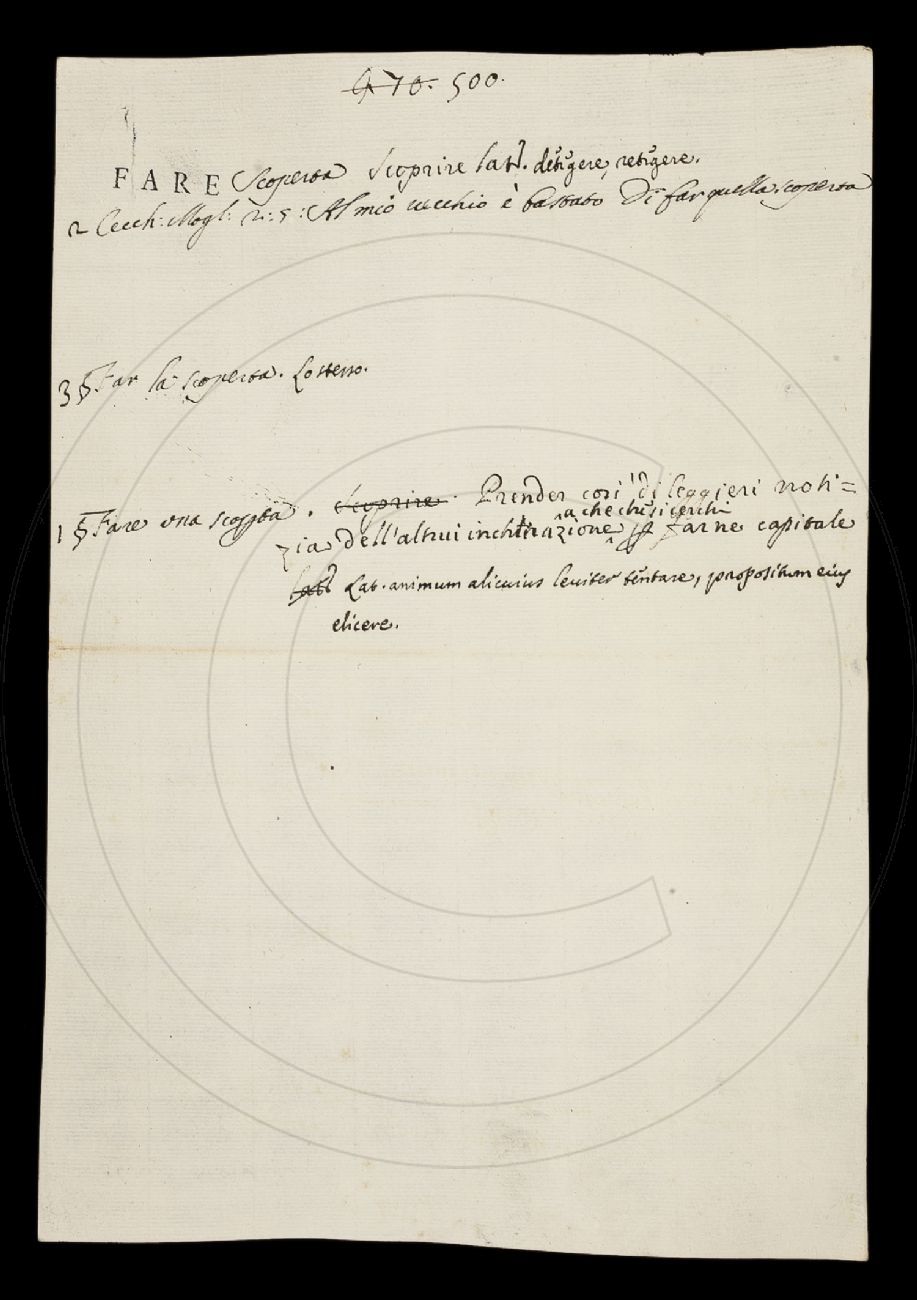 470. 500.
FARE Scoperta Scoprire lat. detegere, retegere.
2 Cecch: Mogl: 2: 5: Al mio vecchio è bastato Di far quella scoperta
3 § Far la scoperta. Lo stesso.
1 § Fare una scoperta. Scoprire. Prender così di leggieri noti=
a che che si cerchi
zia dell'altrui inclinazione farne capitale
lat Lat. animum alicuius leviter tentare, propositum eius
elicere.